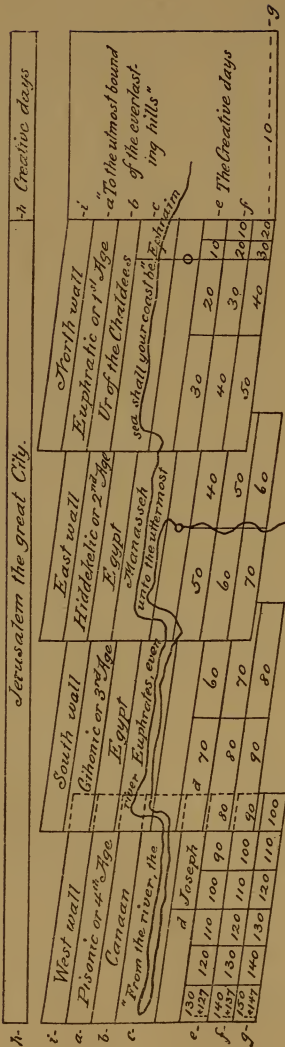 h- Jerusalem the great City. -h Creative days
i- West wall South wall East wall North wall -i
a- Pisonic or 4th Age Gihonic or 3rd Age Hiddekelic or 2nd Age Euphratic or 1st Age -a "To the utmost bound
b- Canaan Egypt Egypt Ur of the Chaldees of the everlast-
ing hills" -b
c- "From the river, the river Euphrates, even Manasseh unto the uttermost sea shall your coast be." Ephraim -c
d Joseph d
e- 130 +127 120 110 100 90 80 70 60 50 40 30 20 10 -e The Creative days
f- 140 +137 130 120 110 100 90 80 70 60 50 40 30 20 10 -f
g- 150 +147 140 130 120 110 100 90 80 70 60 50 40 30 20 10 -g